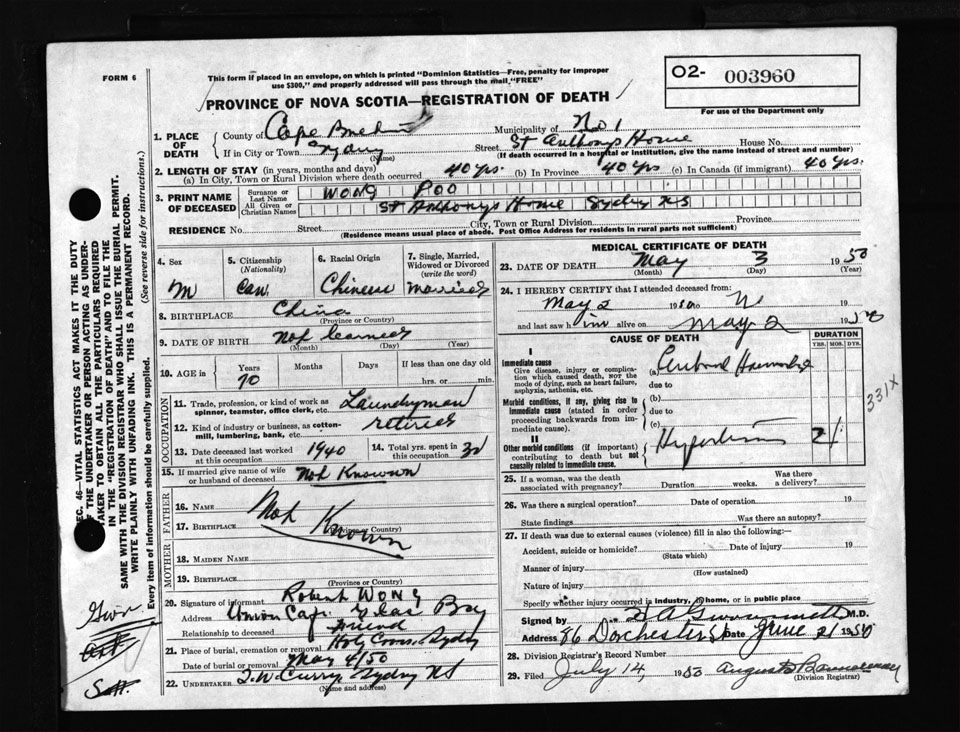 FORM 6
This form if placed in an envelope, on which is printed "Dominion Statistics—Free, penalty for improper
use $300," and properly addressed will pass through the mail "FREE"
O2- 003960
For use of the Department only
PROVINCE OF NOVA SCOTIA—REGISTRATION OF DEATH
1. PLACE OF DEATH
County of Cape Breton Municipality of No 1
If in City or Town Sydney (Name) Street St Anthony Home House No.
(If death occurred in a hospital or institution, give the name instead of street and number)
2. LENGTH OF STAY (in years, months and days)
(a) In City, Town or Rural Division where death occurred 40 yrs. (b) In Province 40 yrs (c) In Canada (if immigrant) 40 yrs.
3. PRINT NAME OF DECEASED
Surname or Last Name WONG POO
All Given or Christian Names St Anthonys Home Sydney NS
RESIDENCE No. Street City, Town or Rural Division Province
(Residence means usual place of abode. Post Office Address for residents in rural parts not sufficient)
4. Sex M
5. Citizenship (Nationality) Can.
6. Racial Origin Chinese
7. Single, Married, Widowed or Divorced (write the word) Married
8. BIRTHPLACE China
(Province or Country)
9. DATE OF BIRTH Not learned
(Month) (Day) (Year)
10. AGE in Years 70 Months Days If less than one day old hrs. or min.
OCCUPATION
11. Trade, profession, or kind of work as spinner, teamster, office clerk, etc. Laundryman
12. Kind of industry or business, as cotton-mill, lumbering, bank, etc. retired
13. Date deceased last worked at this occupation 1940 14. Total yrs. spent in this occupation 30
15. If married give name of wife or husband of deceased Not Known
FATHER
16. NAME Not Known
17. BIRTHPLACE (Province or Country)
MOTHER
18. MAIDEN NAME
19. BIRTHPLACE
(Province or Country)
20. Signature of informant Robert WONG
Address Union Cafe Glace Bay
Relationship to deceased friend
21. Place of burial, cremation or removal Holy Cross, Sydney
Date of burial or removal May 4/50
22. UNDERTAKER T. W. Curry, Sydney NS
(Name and address)
MEDICAL CERTIFICATE OF DEATH
23. DATE OF DEATH May 3 1950
(Month) (Day) (Year)
24. I HEREBY CERTIFY that I attended deceased from:
May 2 19 50 to 19
and last saw him alive on May 2 1950
CAUSE OF DEATH
DURATION
YRS. MOS. DYS.
I
Immediate cause
Give disease, injury or complication which caused death, not the mode of dying, such as heart failure, asphyxia, asthenia, etc.
(a) Cerebral
due to
Morbid conditions, if any, giving rise to immediate cause (stated in order proceeding backwards from immediate cause).
(b)
due to
(c)
II
Other morbid conditions (if important) contributing to death but not causally related to immediate cause.
Hypertension 2
331X
25. If a woman, was the death associated with pregnancy? Duration weeks. Was there a delivery?
26. Was there a surgical operation? Date of operation 19
State findings Was there an autopsy?
27. If death was due to external causes (violence) fill in also the following:—
Accident, suicide or homicide? Date of injury 19
(State which)
Manner of injury
(How sustained)
Nature of injury
Specify whether injury occurred in industry, in home, or in public place
Signed by M.D.
Address 86 Dorchester St Date June 21 1950
28. Division Registrar's Record Number
29. Filed July 14, 1950
(Division Registrar)
SEC. 46—VITAL STATISTICS ACT MAKES IT THE DUTY
THE UNDERTAKER OR PERSON ACTING AS UNDER-
TAKER TO OBTAIN ALL THE PARTICULARS REQUIRED
IN THE "REGISTRATION OF DEATH" AND TO FILE THE
SAME WITH THE DIVISION REGISTRAR WHO SHALL ISSUE THE BURIAL PERMIT.
WRITE PLAINLY WITH UNFADING INK. THIS IS A PERMANENT RECORD.
Every item of information should be carefully supplied. (See reverse side for instructions.)